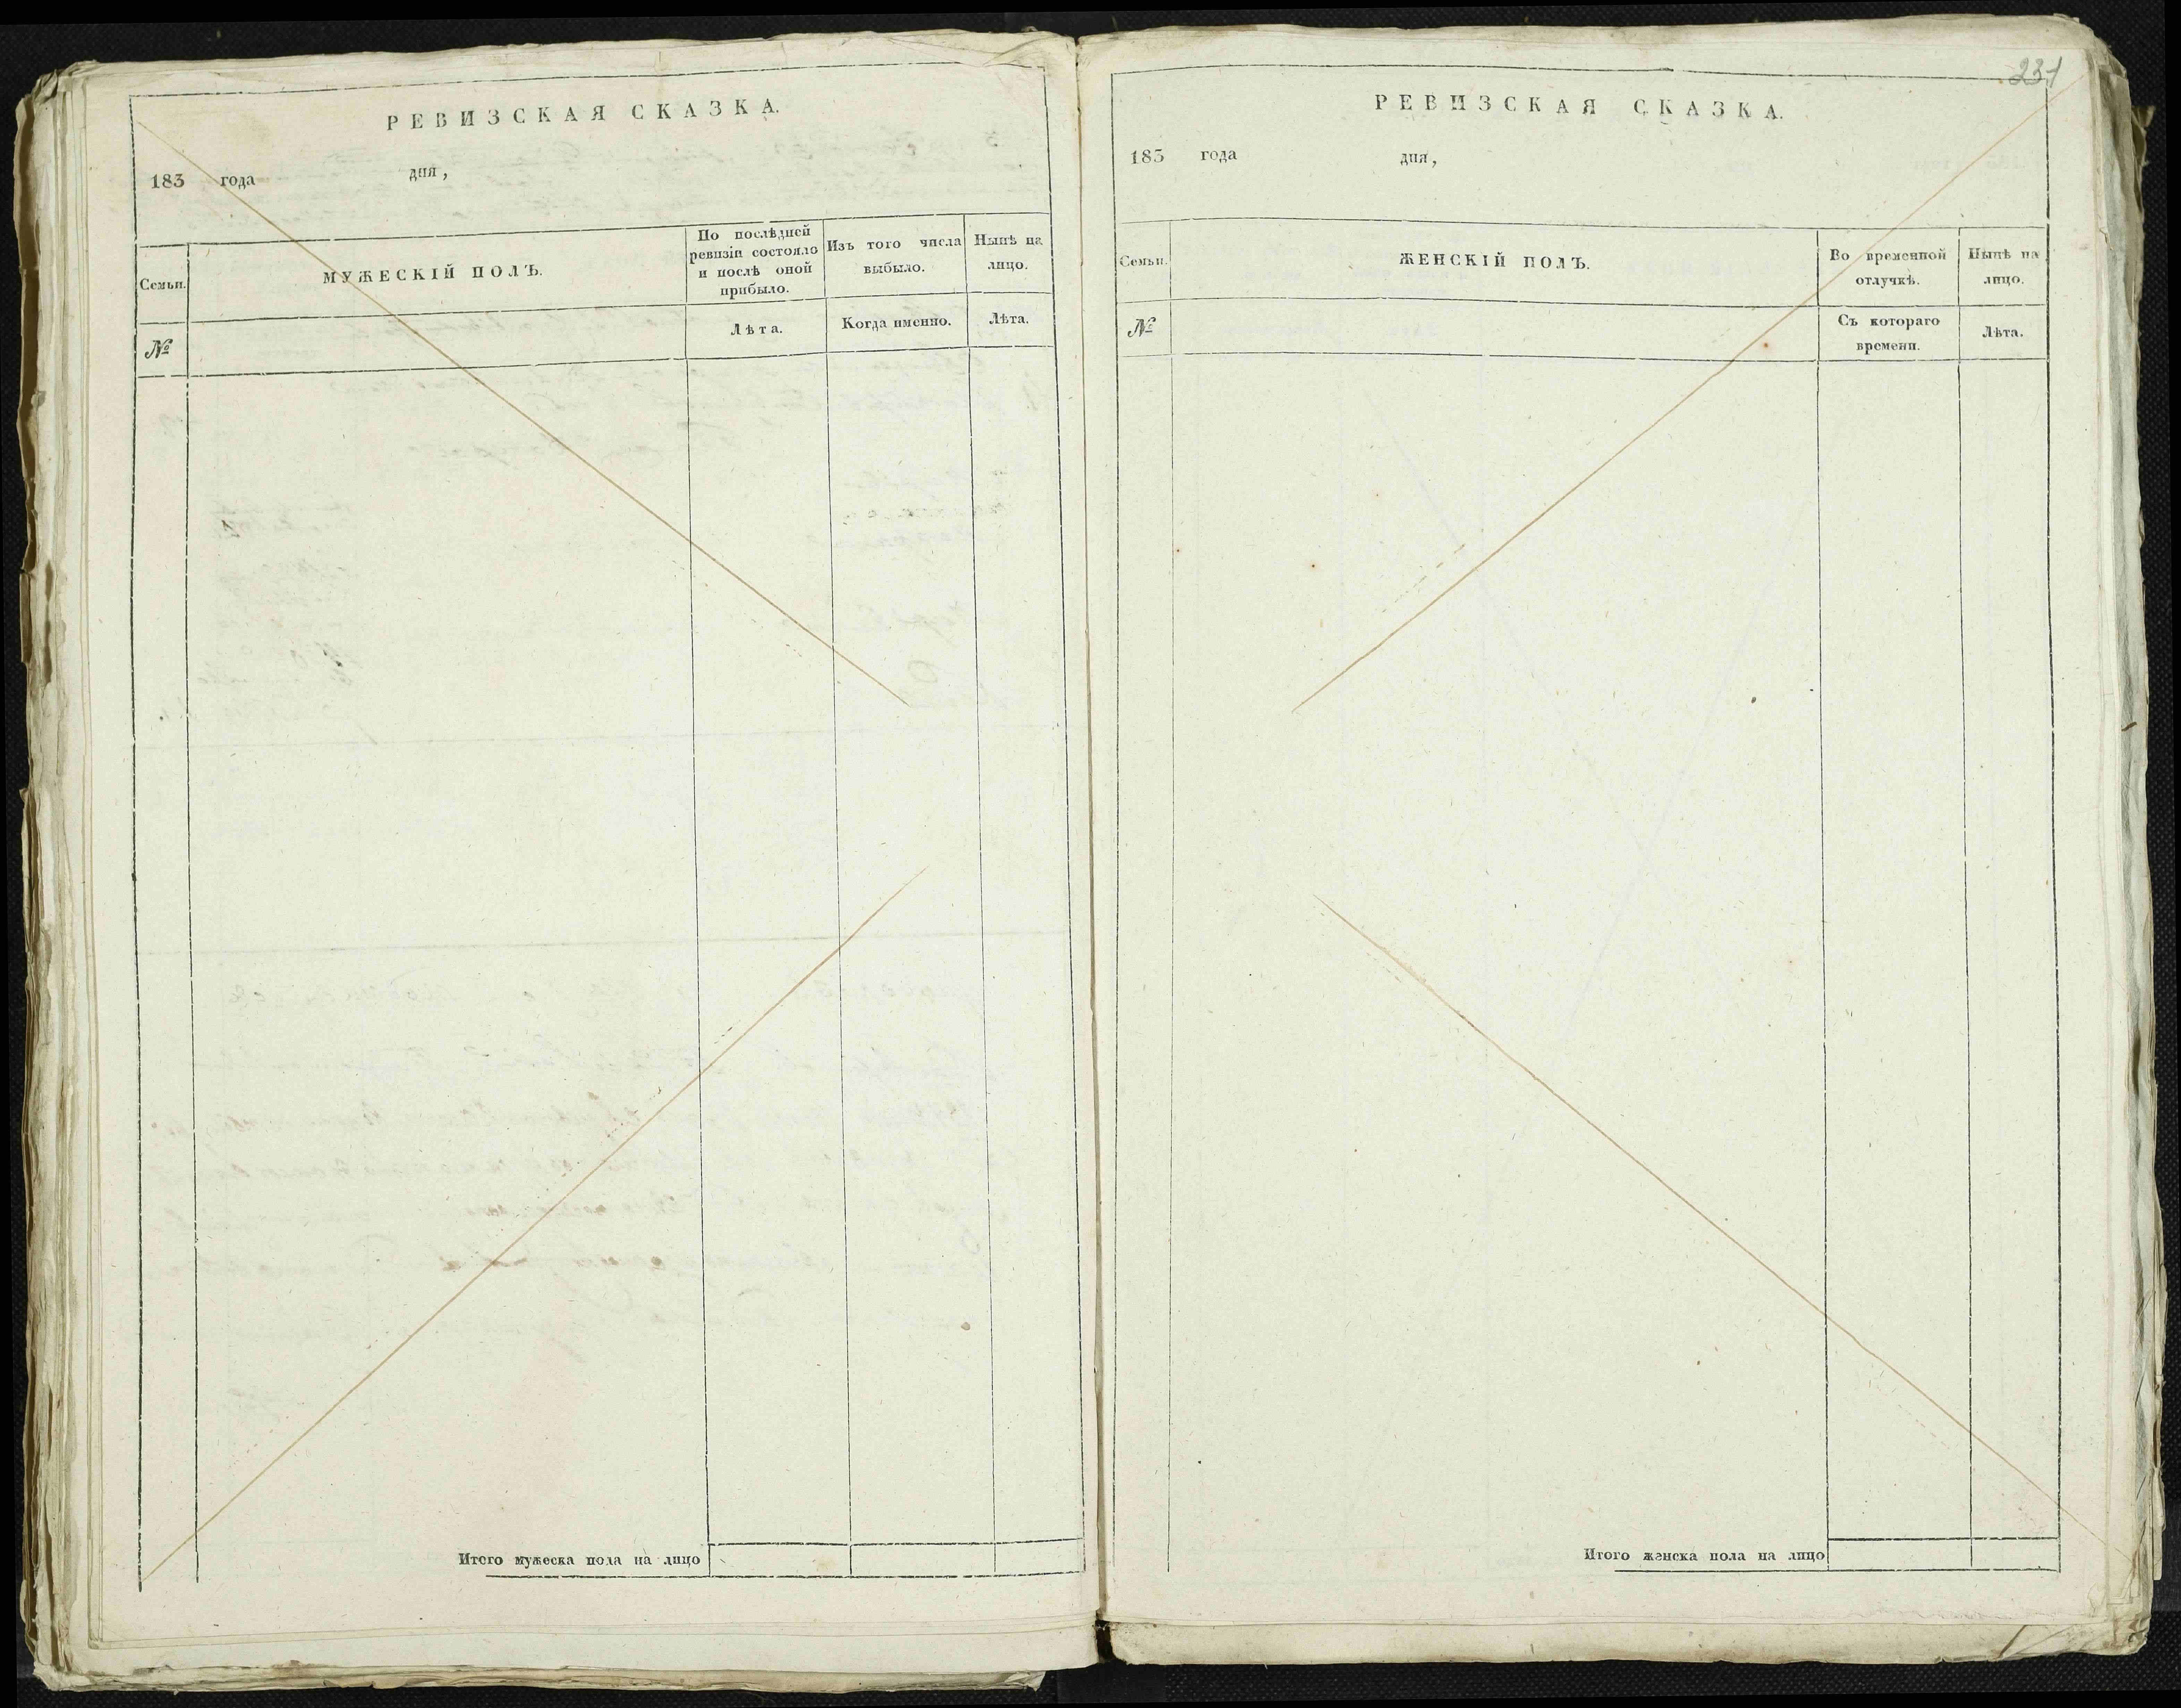 РЕВИЗСКАЯ СКАЗКА.
183 года дня,
Семьи.
МУЖЕСКІЙ ПОЛЪ.
По послѣдней
ревизіи состояло
и послѣ оной
прибыло.
Изъ того числа
выбыло.
Нынѣ на
лицо.
№
Лѣта.
Когда именно.
Лѣта.
Итого мужеска пола на лицо
231
РЕВИЗСКАЯ СКАЗКА.
183 года дня,
Семьи.
ЖЕНСКІЙ ПОЛЪ.
Во временной
отлучкѣ.
Нынѣ на
лицо.
№
Съ котораго
времени.
Лѣта.
Итого женска пола на лицо